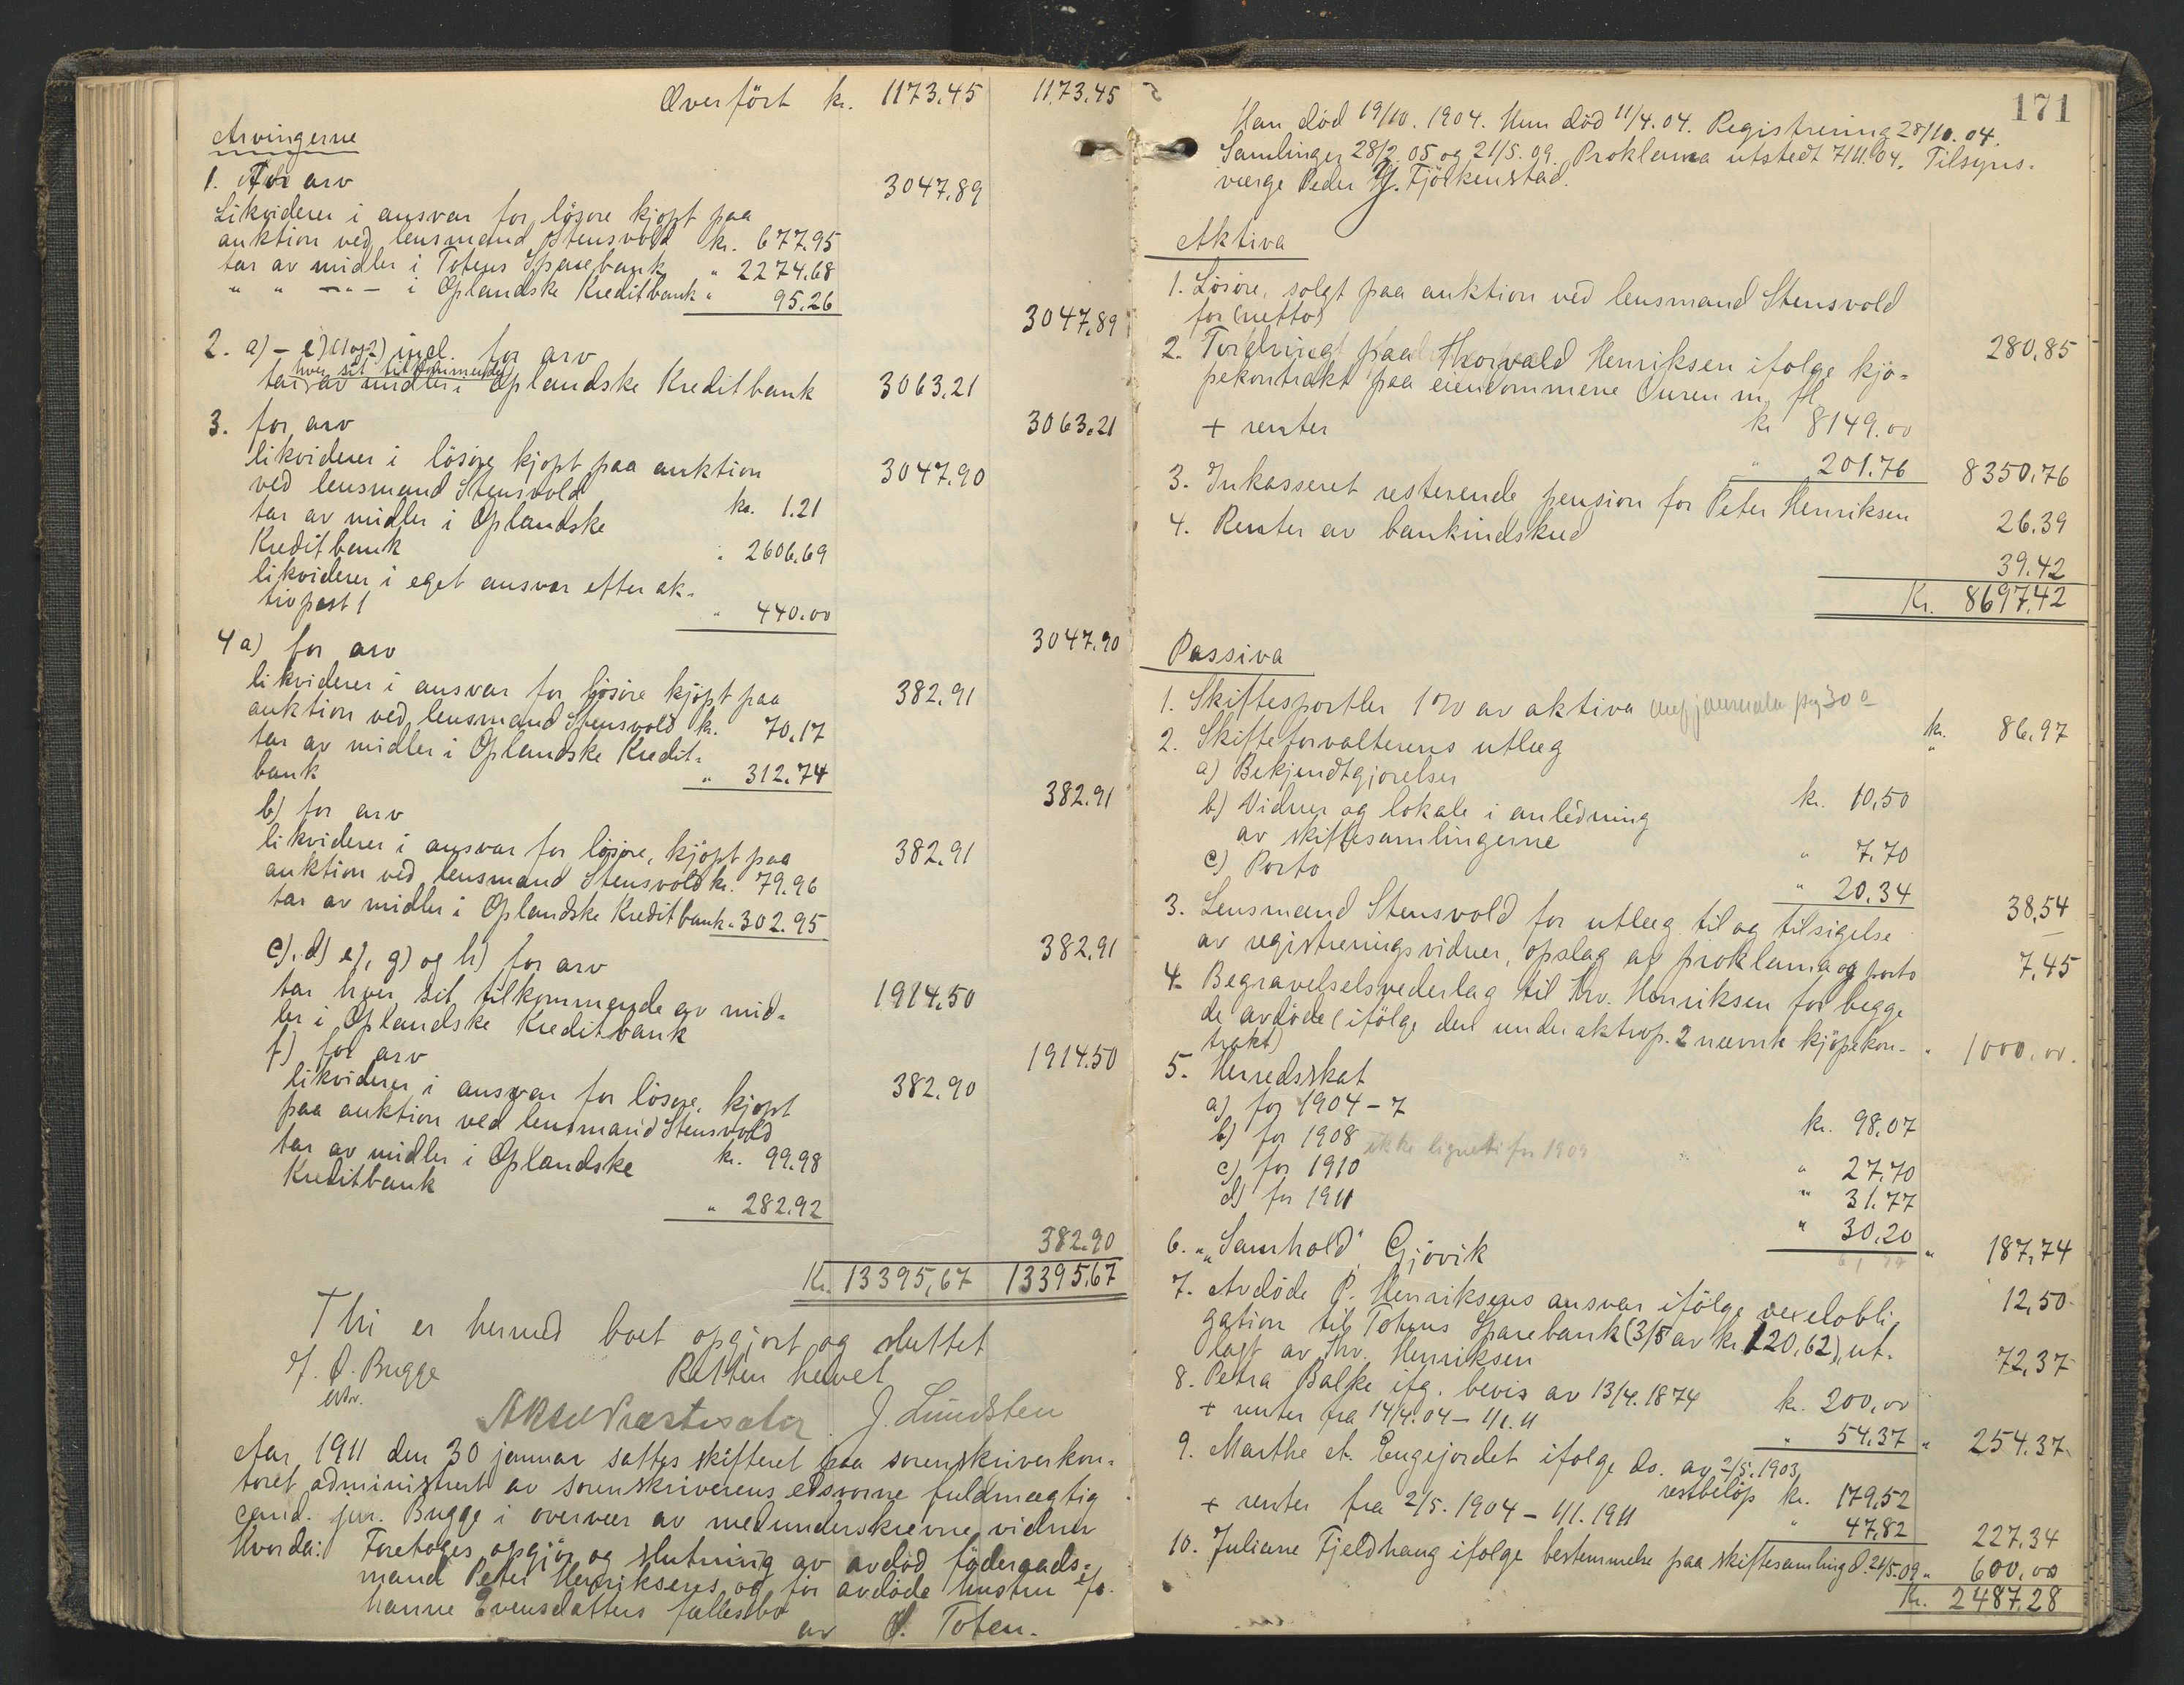 Overført kr. 1173.45 1173.45
Arvingerne
1. For arv 3047.89
Likviderer i ansvar for lösöre kjöpt paa
auktion ved lensmand Stensvold kr. 677.95
tar av midler i Totens Sparebank " 2274.68
" " —"— i Oplandske Kreditbank " 95.26
3047.89
2. a) – e) (1 og 2) incl. for arv
hver sit tilkommende
tar av midler i Oplandske Kreditbank 3063.21
3063.21
3. for arv
likviderer i lösöre kjöpt paa auktion 3047.90
ved lensmand Stensvold
kr. 1.21
tar av midler i Oplandske
Kreditbank " 2606.69
likviderer i eget ansvar efter ak-
tivpost 1 " 440.00
3047.90
4 a) for arv
likviderer i ansvar for lösöre kjöpt paa 382.91
auktion ved lensmand Stensvold kr. 70.17
tar av midler i Oplandske Kredit-
bank " 312.74
382.91
b) for arv
likviderer i ansvar for lösöre, kjöpt paa 382.91
auktion ved lensmand Stensvold kr. 79.96
tar av midler i Oplandske Kreditbank " 302.95
382.91
c), d) e), g) og h) for arv
tar hver sit tilkommende av mid- 1914.50
ler i Oplandske Kreditbank
1914.50
f) for arv
likviderer i ansvar for lösöre, kjöpt 382.90
paa auktion ved lensmand Stensvold
kr. 99.98
tar av midler i Oplandske
Kreditbank " 282.92
382.90
Kr. 13395,67 13395.67
Thi er hermed boet opgjort og sluttet
Retten hevet
O. Bugge
J. Lundsten
Aar 1911 den 30 januar sattes skifteret paa sorenskriverkon-
toret administrert av sorenskriverens edsvorne fuldmægtig
cand. jur. Bugge i overvær av medunderskrevne vidner
Hvorda: Foretoges opgjör og slutning av avdöd föderaads-
mand Peter Henriksens og för avdöde hustru Jo-
hanne Evensdatters fællesbo
av Ö. Toten.
171
Han död 19/10. 1904. Hun död 11/4. 04. Registrering 28/10. 04.
Samlinger 28/2. 05 og 21/5. 09. Proklama utstedt 7/11. 04. Tilsyns-
verge Peder Fjörkenstad.
Aktiva
1. Lösöre, solgt paa auktion ved lensmand Stensvold
for (netto) 280,85
2. Fordringt paa Thorvald Henriksen ifölge kjö-
pekontrakt paa eiendommene Ouren m. fl.
kr 8149.00
+ renter " 201.76 8350,76
3. Inkasseret resterende pension for Peter Henriksen 26.39
4. Renter av bankindskud 39.42
Kr. 8697,42
Passiva
1. Skiftesportler 1 % av aktiva kr. 86.97
2. Skifteforvalterens utlæg "
a) Bekjendtgjörelser kr. 10,50
b) Vidner og lokale i anledning
av skiftesamlingerne " 7.70
c) Porto " 20.34 38,54
3. Lensmand Stensvold for utlæg til og tilsigelse
av registreringsvidner, opslag av proklama og porto 7.45
4. Begravelselsvederlag til Thv. Henriksen for begge
de avdöde (ifölge den under aktivp. 2 nævnte kjöpekon-
trakt) " 1000.00.
5. Herredsskat
a) for 1904 – 7 kr. 98.07
b) for 1908 ikke lignet i for 1909 " 27.70
c) for 1910 " 31.77
d) for 1911 " 30,20 " 187,74
6. "Samhold", Gjövik 12,50
7. Avdöde P. Henriksens ansvar ifölge vexelobli-
gation til Totens Sparebank (3/5 av kr. 120,62), ut-
lagt av Thv. Henriksen 72,37
8. Petra Balke ifg. bevis av 13/4. 1874 kr. 200,00
+ renter fra 14/4. 04 – 1/1. 11 " 54.37 " 254.37
9. Marthe A. Engejordet ifölge do. av 2/5. 1903
restbelöp kr. 179,52
+ renter fra 2/5. 1904 – 1/1. 1911 " 47,82 227,34
10. Juliane Fjeldhaug ifölge bestemmelse paa skiftesamling d. 21/5. 09 " 600,00
Kr. 2487,28